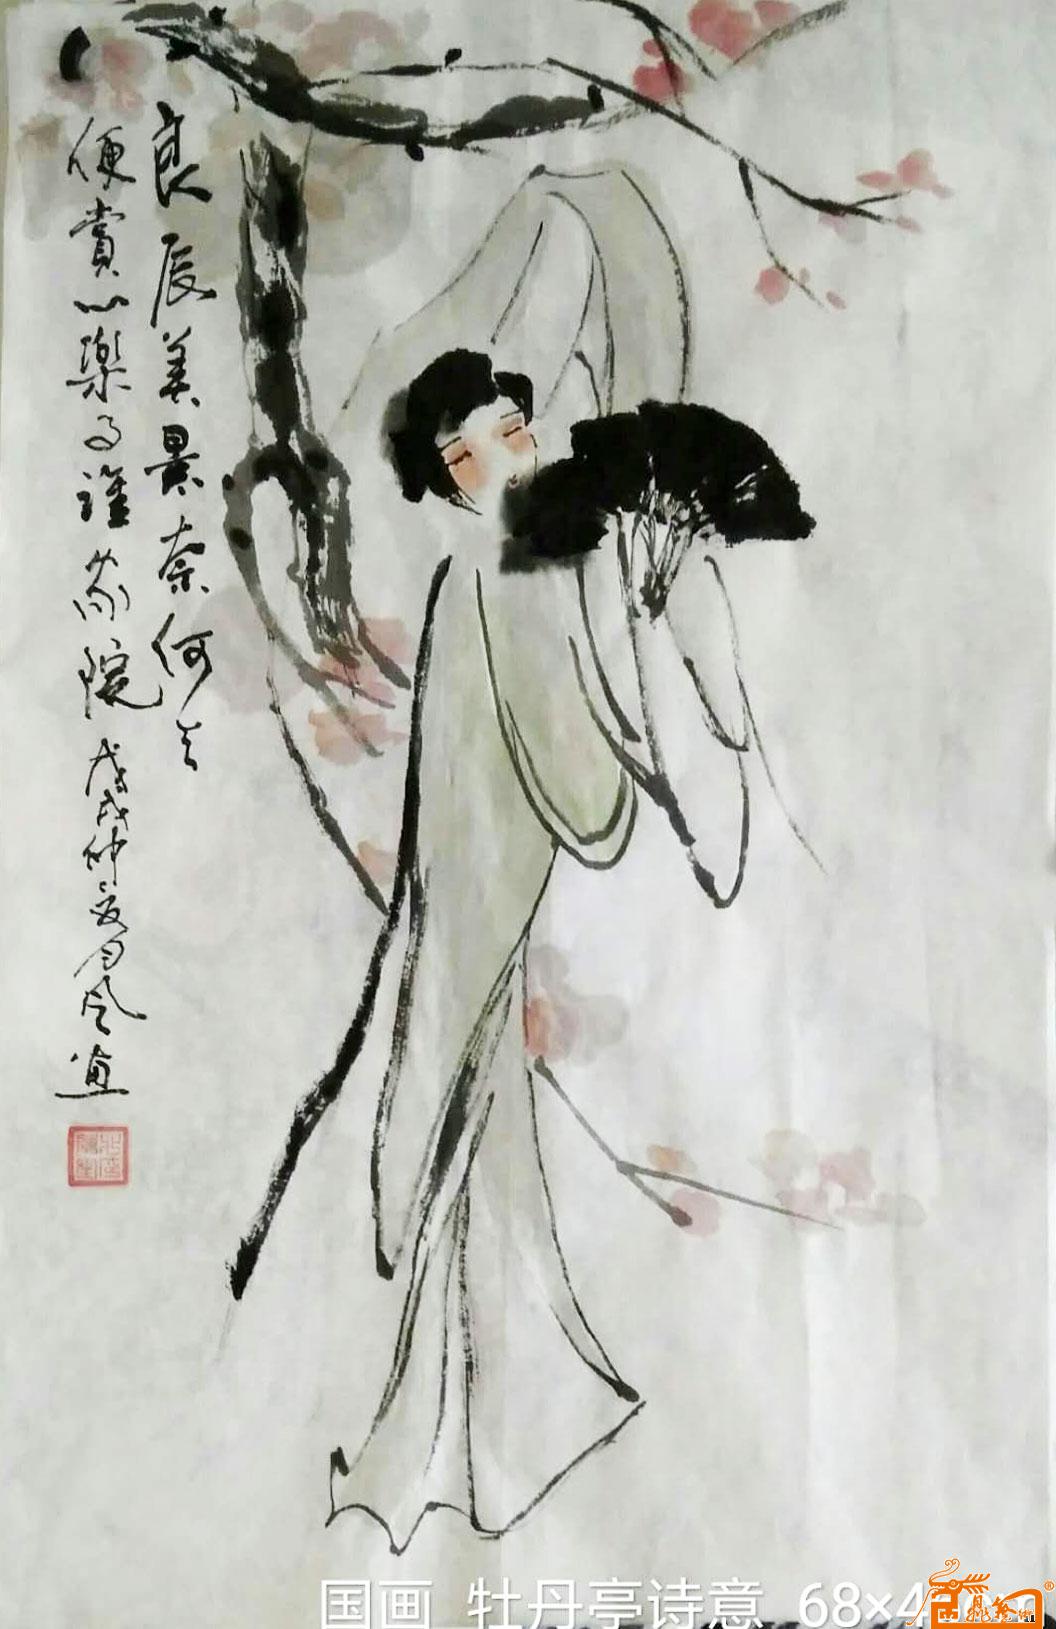 良辰美景奈何天
便賞心樂事誰家院
戊戌仲夏月风画
国画 牡丹亭诗意 68×4